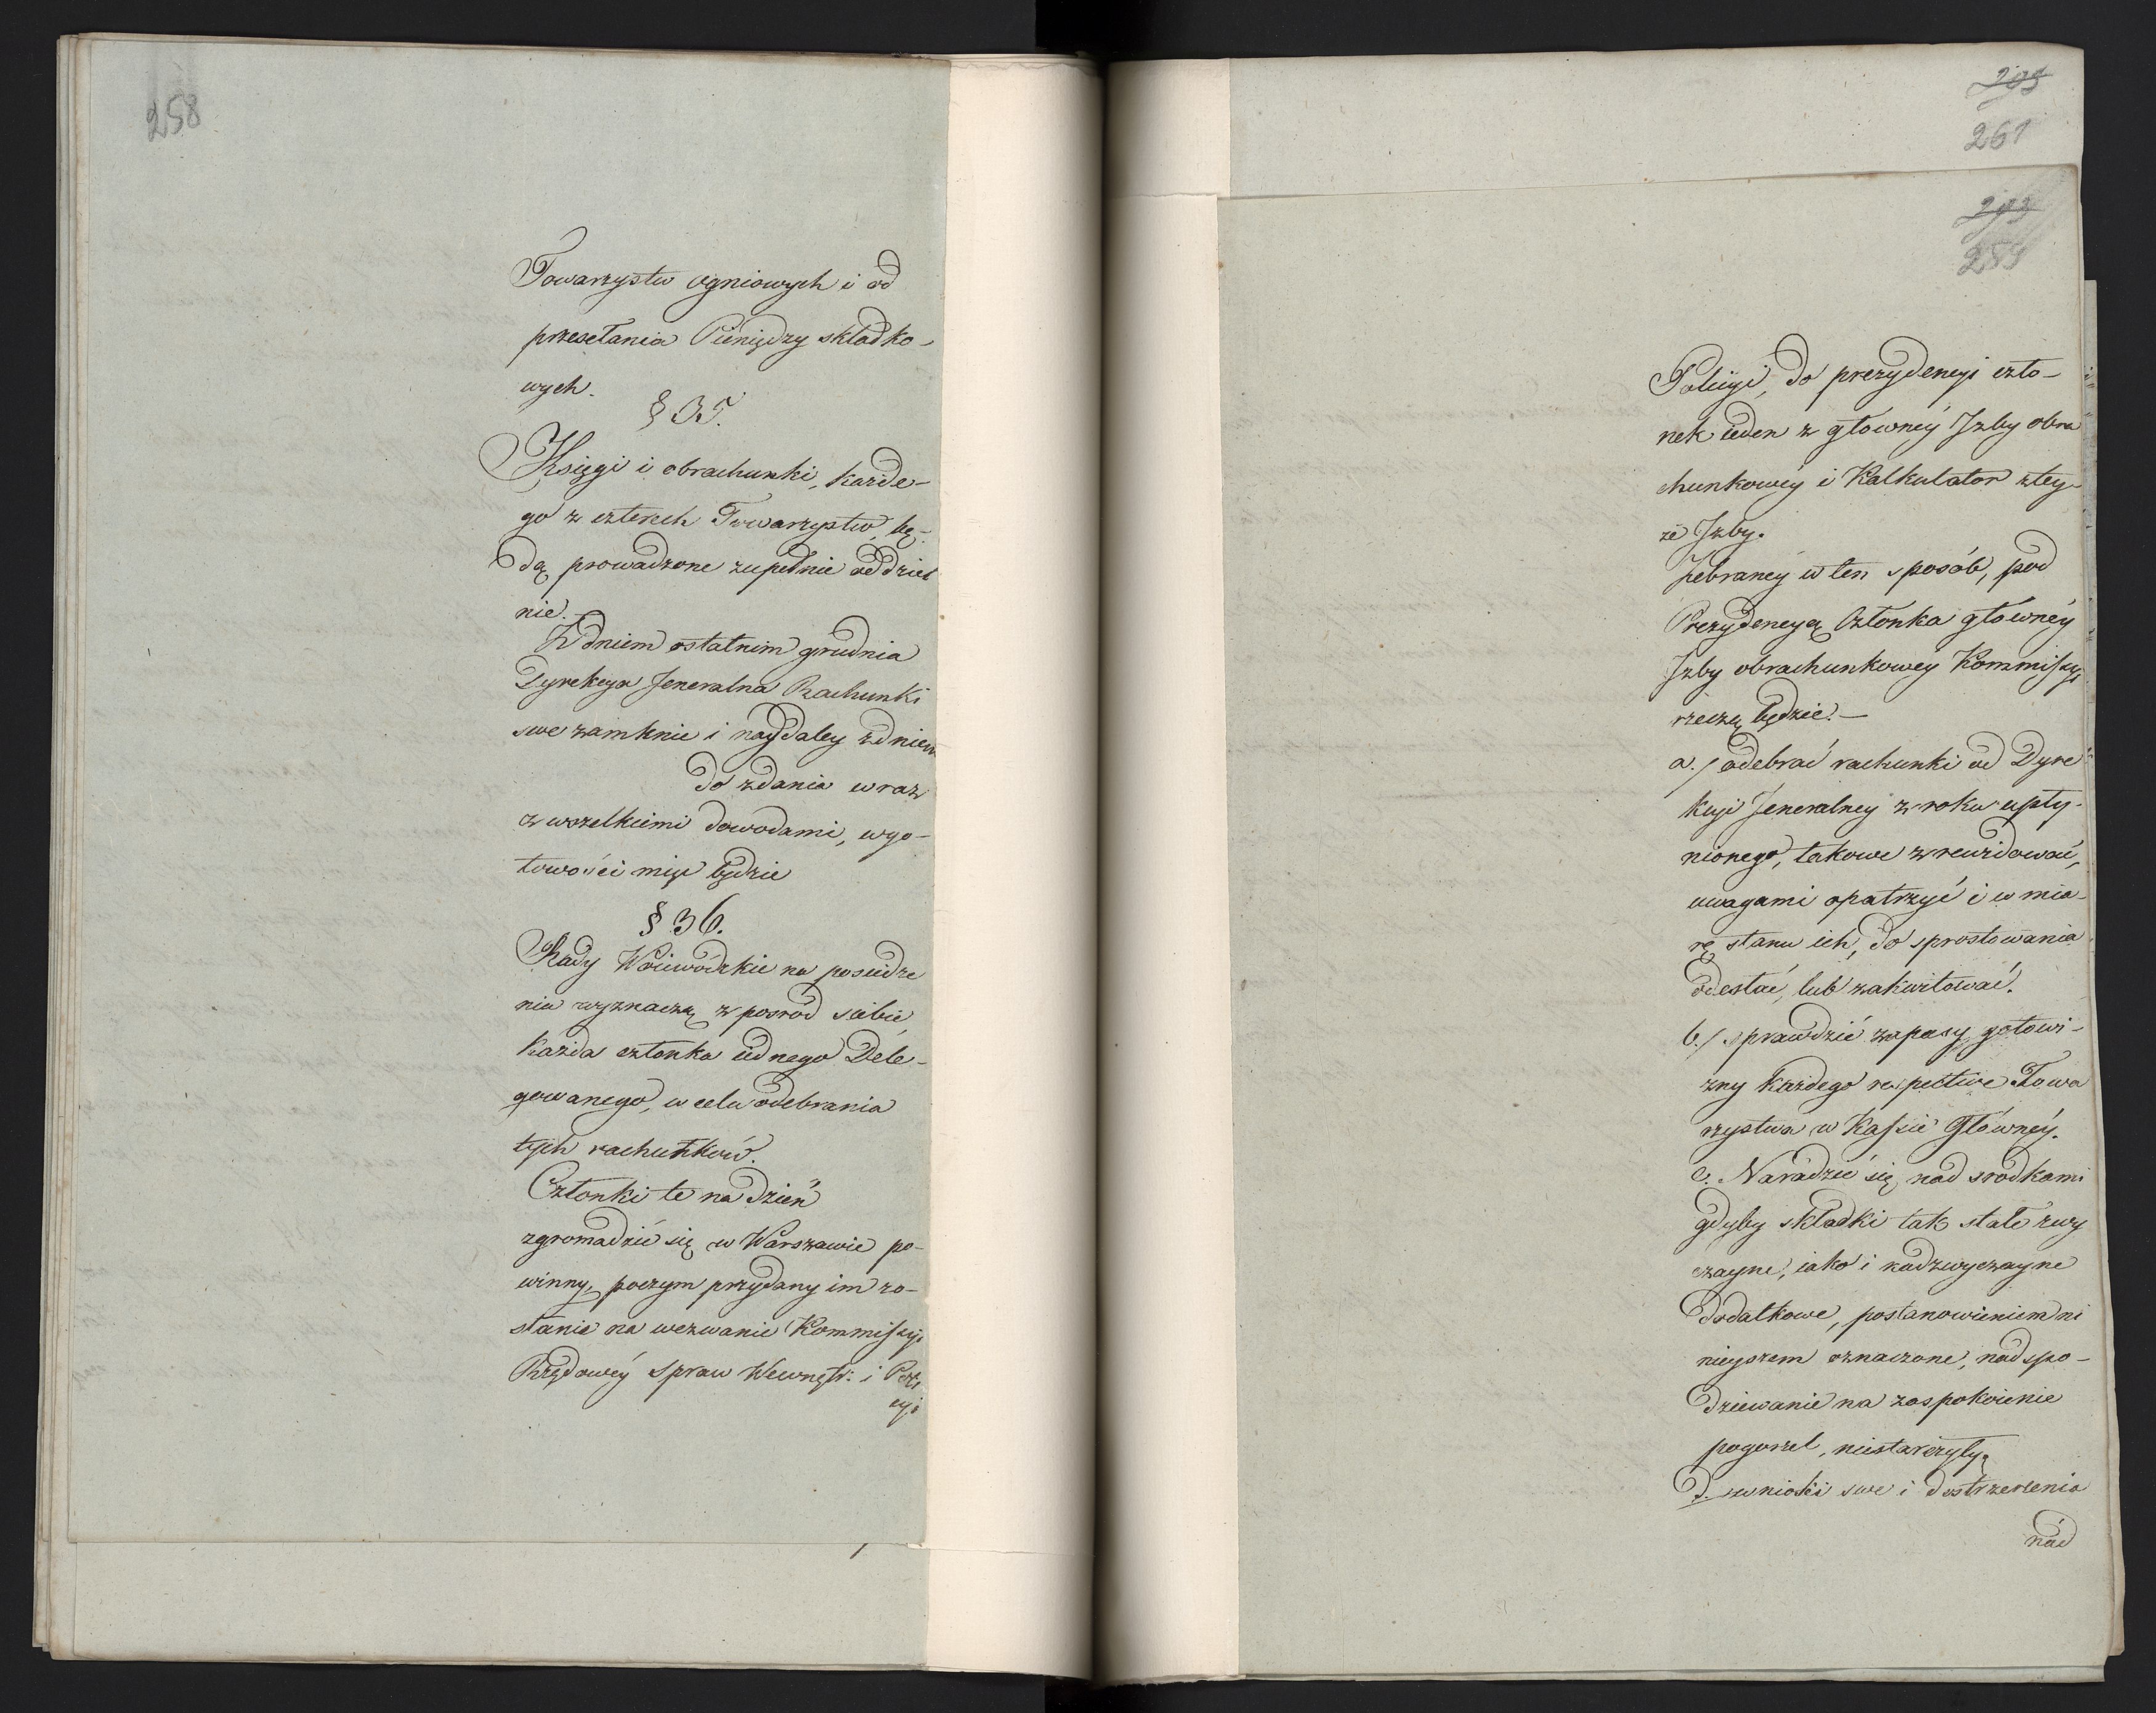 258
Towarzystw ogniowych i od
przesełania Pieniędzy składko-
wych.
§ 35.
Księgi i obrachunki, każde-
go z czterech Towarzystw, bę-
dą prowadzone zupełnie oddziel
nie.
Z dniem ostatnim grudnia
Dyrekcya Jeneralna Rachunki
swe zamknie i naydaley z dniem
do zdania wraz
z wszelkiemi dowodami, w go-
towości mieć będzie
§ 36.
Rady Woiewódzkie na posiedze
nia wyznaczą z pośród siebie
każda członka iednego Dele-
gowanego, w celu odebrania
tych rachunków.
Członki te na dzień
zgromadzić się w Warszawie po-
winny, poczym przydany im zo-
stanie na wezwanie Kommissyi
Rządowéy Spraw Wewnętr: i Poli
cyi
205
261
203
259
Policyi, do prezydencyi czło-
nek ieden z główney Izby obra
chunkowéy i Kalkulator z tey-
że Izby.
Zebraney w ten sposób, pod
Prezydencyą Członka główney
Izby obrachunkowey Kommissyi
rzeczą będzie.-
a./ odebrać rachunki od Dyre
kcyi Jeneralney z roku upły-
nionego, takowe zrewidować,
uwagami opatrzyć i w mia-
rę stanu ich, do sprostowania
odesłać, lub zakwitować.
b./ sprawdzić zapasy gotowi-
zny każdego respective Towa
rzystwa w Kassie Główney.
c. Naradzić się nad środkami
gdyby składki tak stałe zwy
czayne, iako i nadzwyczayne
dodatkowe, postanowieniem ni
nieyszem oznaczone, nadspo-
dziewanie na zaspokoienie
pogorzel, niestarczyły.
d. wnioski swe i dostrzeżenia
nad